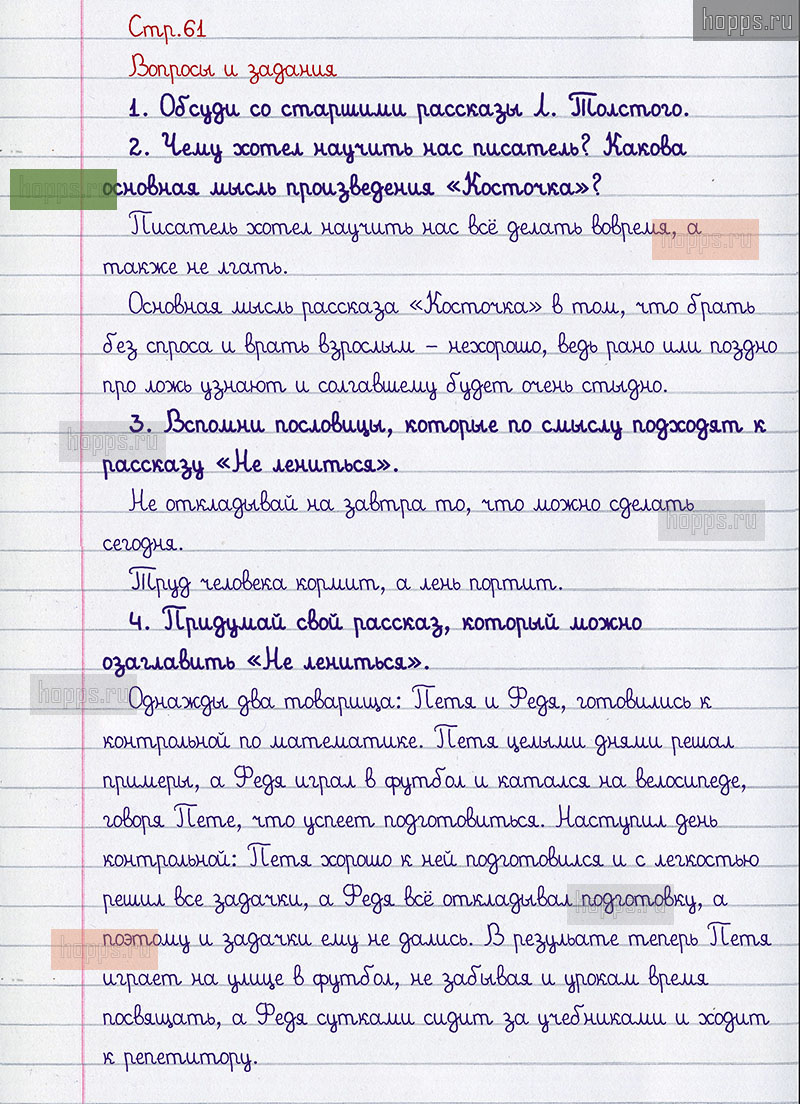 hopps.ru
Стр.61
Вопросы и задания
1. Обсуди со старшими рассказы Л. Толстого.
2. Чему хотел научить нас писатель? Какова
hopps.ru
основная мысль произведения «Косточка»?
Писатель хотел научить нас всё делать вовремя, а
hopps.ru
также не лгать.
Основная мысль рассказа «Косточка» в том, что брать
без спроса и врать взрослым – нехорошо, ведь рано или поздно
про ложь узнают и солгавшему будет очень стыдно.
3. Вспомни пословицы, которые по смыслу подходят к
hopps.ru
рассказу «Не лениться».
Не откладывай на завтра то, что можно сделать
hopps.ru
сегодня.
Труд человека кормит, а лень портит.
4. Придумай свой рассказ, который можно
озаглавить «Не лениться».
hopps.ru
Однажды два товарища: Петя и Федя, готовились к
контрольной по математике. Петя целыми днями решал
примеры, а Федя играл в футбол и катался на велосипеде,
говоря Пете, что успеет подготовиться. Наступил день
контрольной: Петя хорошо к ней подготовился и с легкостью
решил все задачки, а Федя всё откладывал подготовку, а
hopps.ru
поэтому и задачки ему не дались. В резульате теперь Петя
hopps.ru
играет на улице в футбол, не забывая и урокам время
посвящать, а Федя сутками сидит за учебниками и ходит
к репетитору.